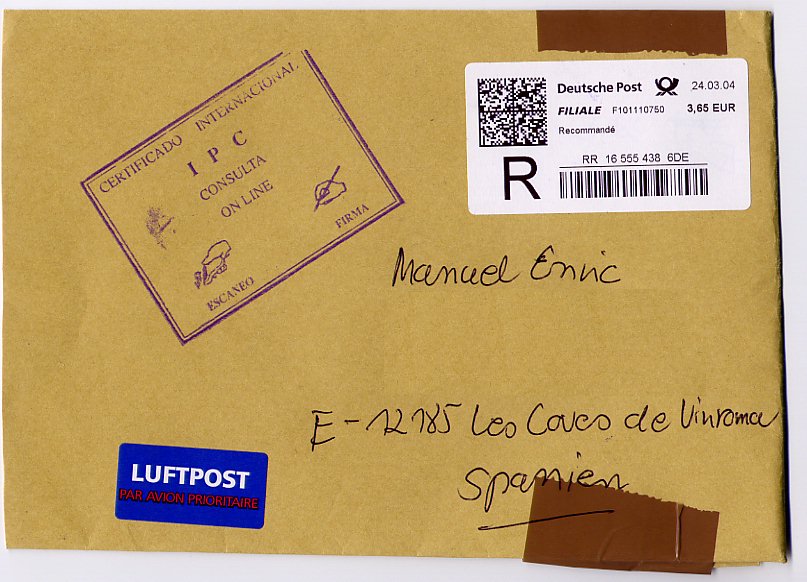 Deutsche Post 24.03.04
FILIALE F101110750 3,65 EUR
Recommandé
RR 16 555 438 6DE
R
CERTIFICADO INTERNACIONAL
I P C
CONSULTA
ON LINE
ESCANEO
FIRMA
Manuel Enric
E-12185 Les Coves de Vinroma
Spanien
LUFTPOST
PAR AVION PRIORITAIRE